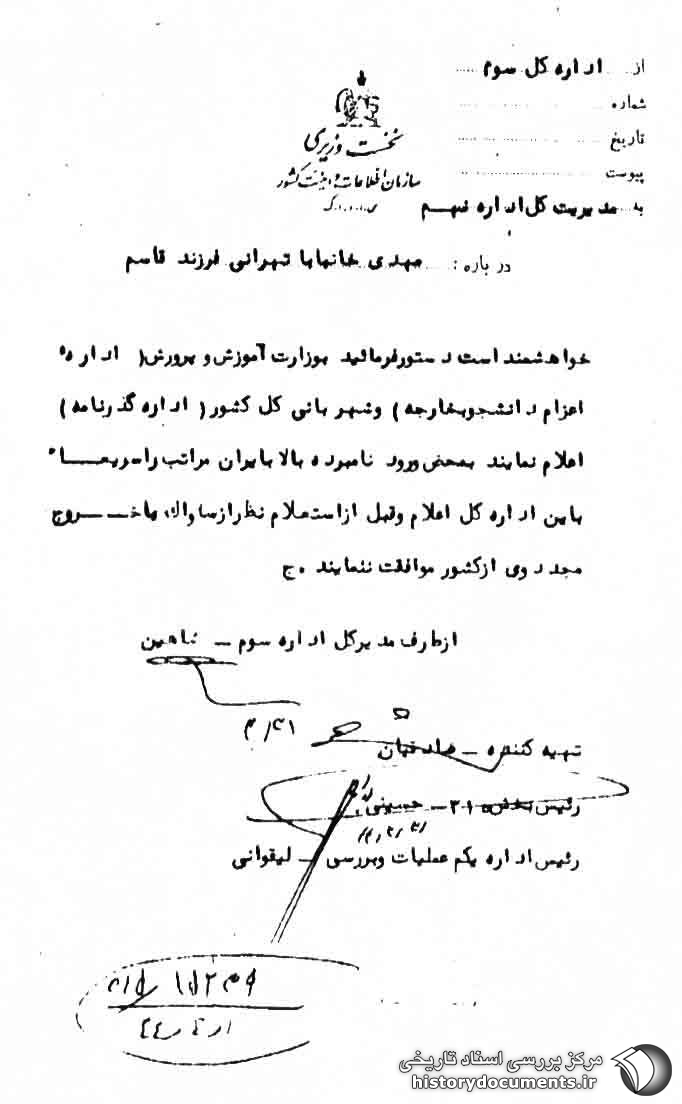 از ... اداره کل سوم
شماره
تاریخ
پیوست
به ... مدیریت کل اداره نهم
نخست وزیری
سازمان اطلاعات و امنیت کشور
درباره : مهدی خانبابا تهرانی فرزند قاسم
خواهشمند است دستور فرمائید بوزارت آموزش و پرورش ( اداره
اعزام دانشجو بخارجه ) و شهربانی کل کشور ( اداره گذرنامه )
اعلام نمایند بمحض ورود نامبرده بالا بایران مراتب را سریعا
باین اداره کل اعلام و قبل از استعلام نظر از ساواک با خروج
مجدد وی از کشور موافقت ننمایند . ج
از طرف مدیرکل اداره سوم – شاهین
تهیه کننده –
رئیس بخش ۳۱ – حسینی
رئیس اداره یکم عملیات و بررسی – لیقوانی
مرکز بررسی اسناد تاریخی
historydocuments.ir